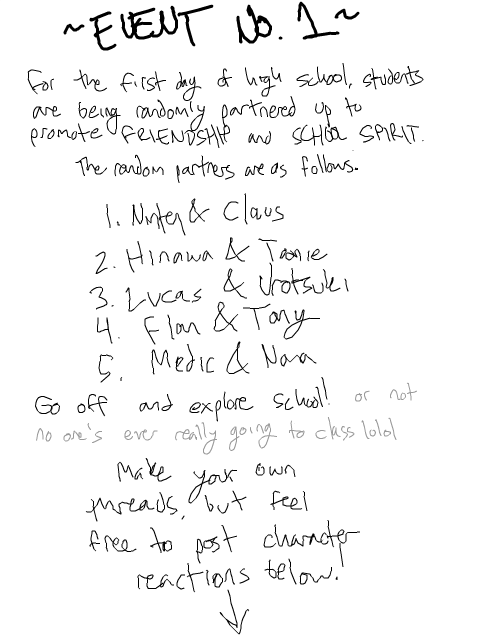 ~EVENT No. 1~
For the first day of high school, students
are being randomly partnered up to
promote FRIENDSHIP and SCHOOL SPIRIT.
The random partners are as follows.
1. Ninten & Claus
2. Hinawa & Tonie
3. Lucas & Urotsuki
4. Flan & Tony
5. Medic & Nana
Go off and explore school! or not
no one's ever really going to class lolol
Make your own
threads, but feel
free to post character
reactions below!